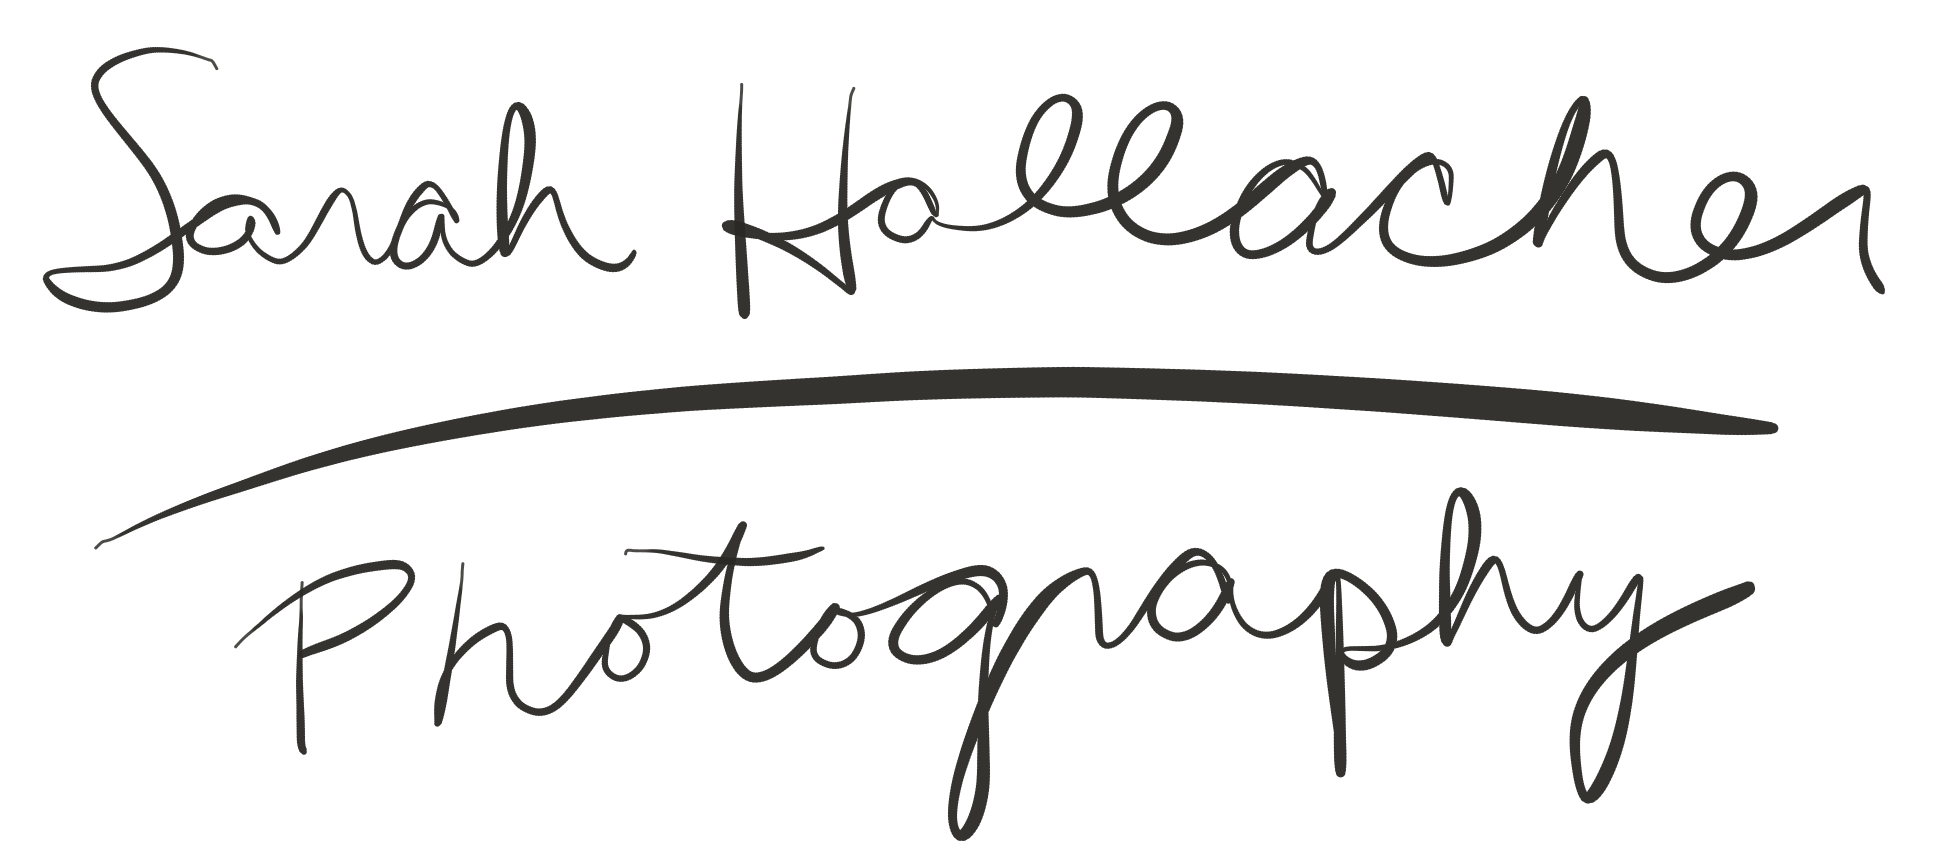 Sarah Hollacher
Photography